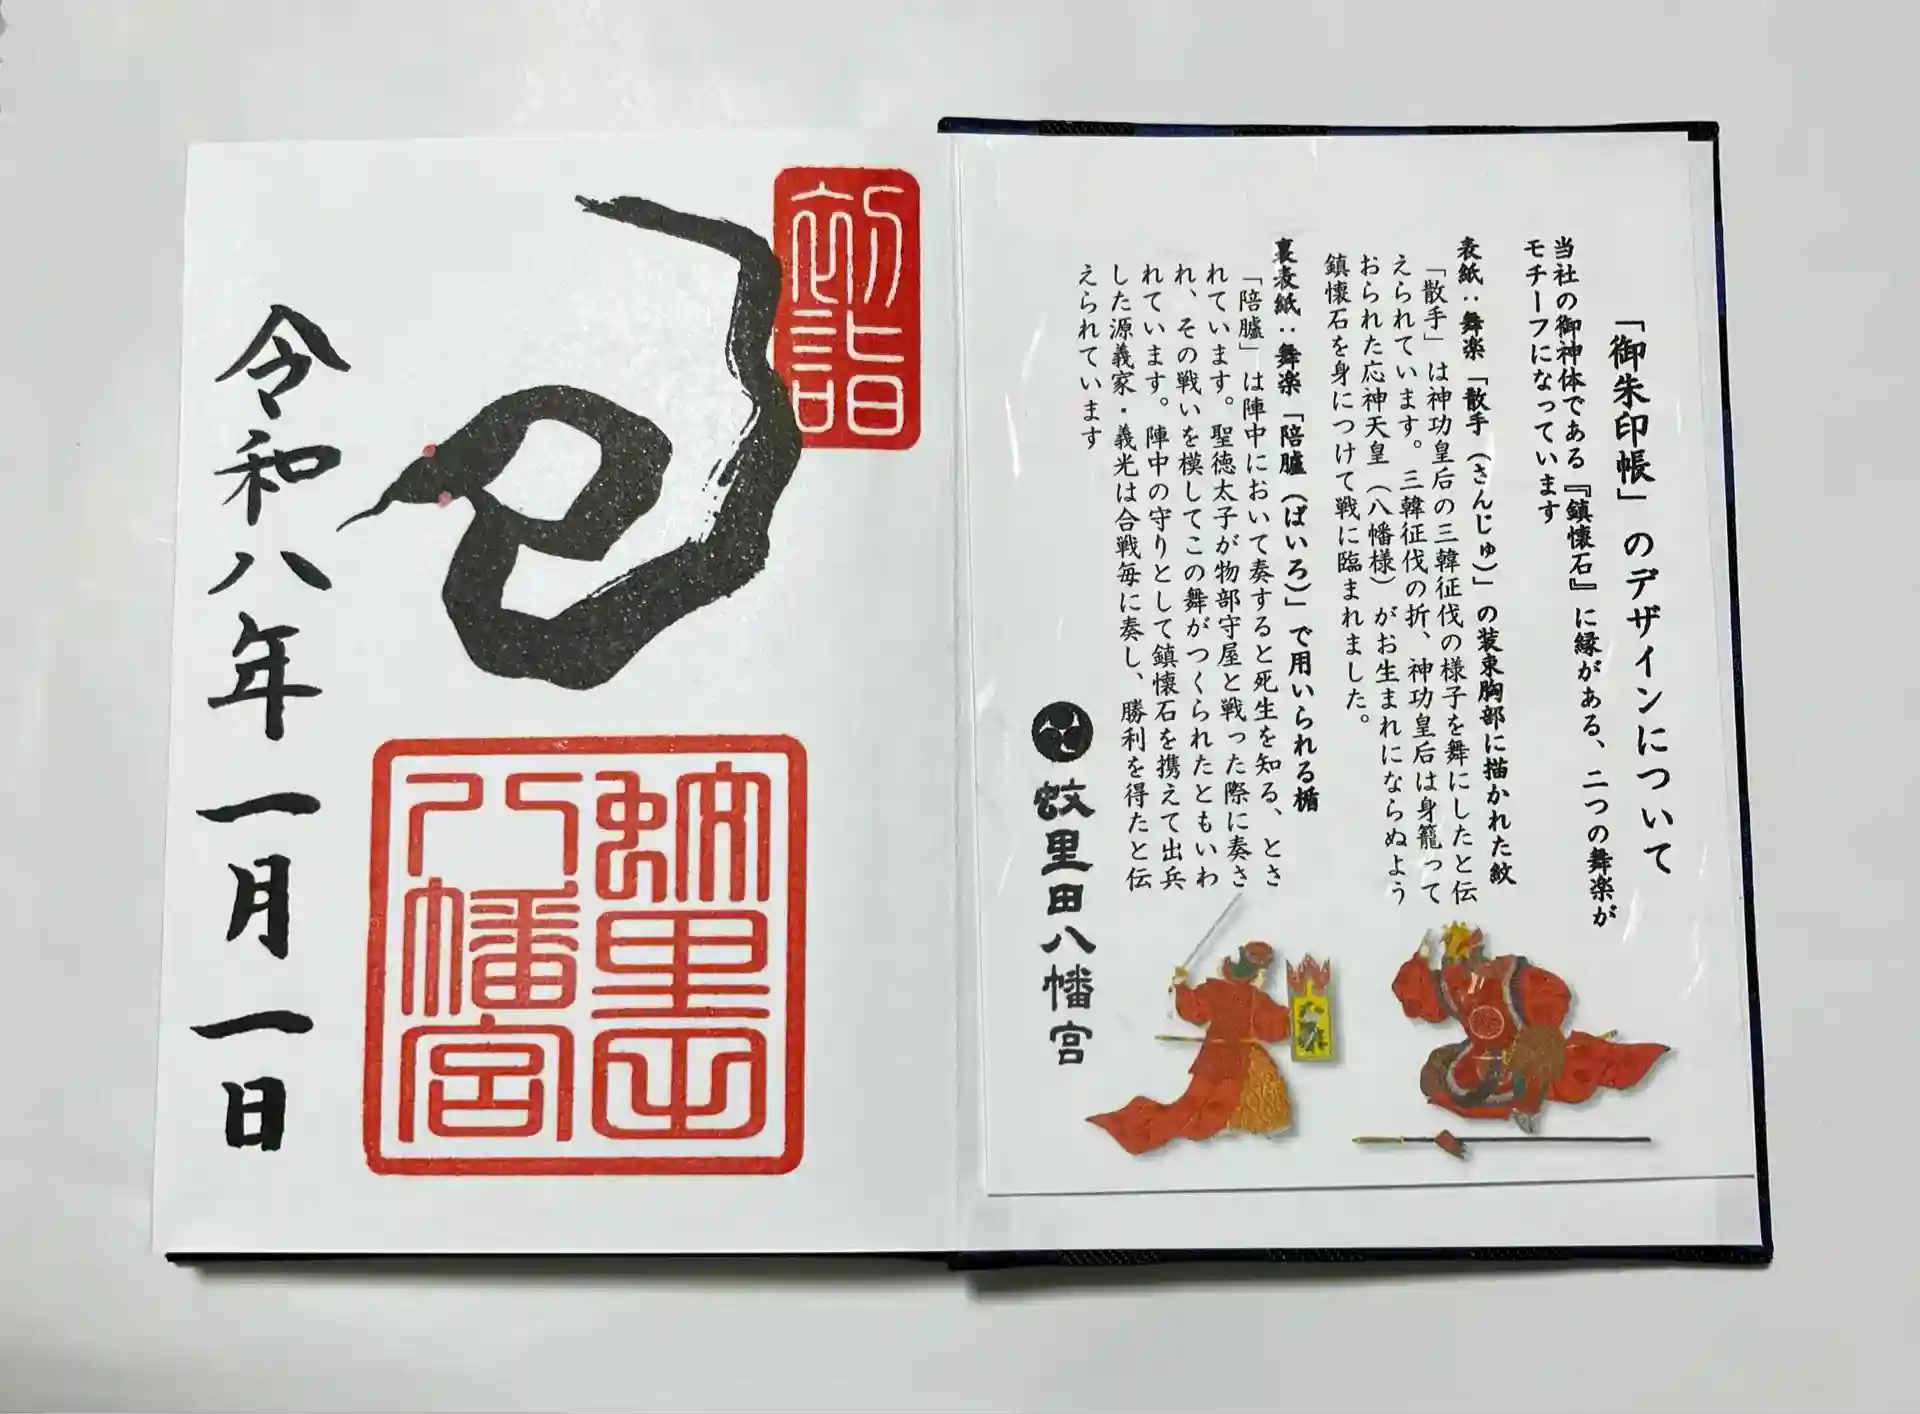 「御朱印帳」のデザインについて
当社の御神体である『鎮懐石』に縁がある、二つの舞楽が
モチーフになっています
表紙：舞楽「散手（さんじゅ）」の装束胸部に描かれた紋
「散手」は神功皇后の三韓征伐の様子を舞にしたと伝
えられています。三韓征伐の折、神功皇后は身籠って
おられた応神天皇（八幡様）がお生まれにならぬよう
鎮懐石を身につけて戦に臨まれました。
裏表紙：舞楽「陪臚（ばいろ）」で用いられる楯
「陪臚」は陣中において奏すると死生を知る、とさ
れています。聖徳太子が物部守屋と戦った際に奏さ
れ、その戦いを模してこの舞がつくられたともいわ
れています。陣中の守りとして鎮懐石を携えて出兵
した源義家・義光は合戦毎に奏し、勝利を得たと伝
えられています
蛟里田八幡宮
初詣
蛟里田
八幡宮
令和八年一月一日